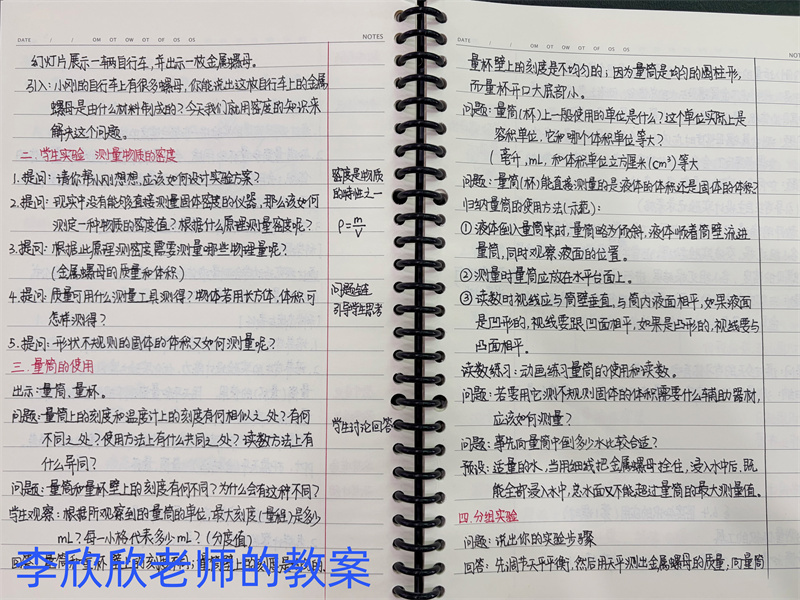 DATE / / OM OT OW OT OF OS OS NOTES
幻灯片展示一辆自行车,并出示一枚金属螺母。
引入:小刚的自行车上有很多螺母,你能说出这枚自行车上的金属
螺母是由什么材料制成的?今天我们就用密度的知识来
解决这个问题。
二.学生实验 测量物质的密度
1.提问:请你帮小刚想想,应该如何设计实验方案?
2.提问:现实中没有能够直接测量固体密度的仪器,那么该如何
测定一种物质的密度值?根据什么原理测量密度呢?
3.提问:根据此原理测密度需要测量哪些物理量呢?
(金属螺母的质量和体积)
4.提问:质量可用什么测量工具测得?物体若用长方体,体积可
怎样测得?
5.提问:形状不规则的固体的体积又如何测量呢?
三.量筒的使用
出示:量筒、量杯。
问题:量筒上的刻度和温度计上的刻度有何相似之处?有何
不同之处?使用方法上有什么共同之处?读数方法上有
什么异同?
问题:量筒和量杯壁上的刻度有何不同?为什么会有这种不同?
学生观察:根据所观察到的量筒的单位,最大刻度(量程)是多少
mL?每一小格代表多少mL?(分度值)
回答:量筒和量杯壁上的刻度不同;量筒壁上的刻度是均匀的,
密度是物质
的特性之一
ρ=m/V
问题链
引导学生思考
学生讨论回答
李欣欣老师的教案
DATE / / OM OT OW OT OF OS OS NOTES
量杯壁上的刻度是不均匀的;因为量筒是均匀的圆柱形,
而量杯开口大底部小。
问题:量筒(杯)上一般使用的单位是什么?这个单位实际上是
容积单位,它和哪个体积单位等大?
(毫升,mL,和体积单位立方厘米(cm³)等大
问题:量筒(杯)能直接测量的是液体的体积还是固体的体积?
归纳量筒的使用方法(示范):
①液体倒入量筒中时,量筒略为倾斜,液体顺着筒壁流进
量筒,同时观察液面的位置。
②测量时量筒应放在水平台面上。
③读数时视线应与筒壁垂直,与筒内液面相平,如果液面
是凹形的,视线要跟凹面相平,如果是凸形的,视线要与
凸面相平。
读数练习:动画练习量筒的使用和读数。
问题:若要用它测不规则固体的体积需要什么辅助器材,
应该如何测量?
问题:事先向量筒中倒多少水比较合适?
预设:适量的水,当用细线把金属螺母拴住,浸入水中后,既
能全部浸入水中,总水面又不能超过量筒的最大测量值。
四.分组实验
问题:说出你的实验步骤
回答:先调节天平平衡,然后用天平测出金属螺母的质量;向量筒